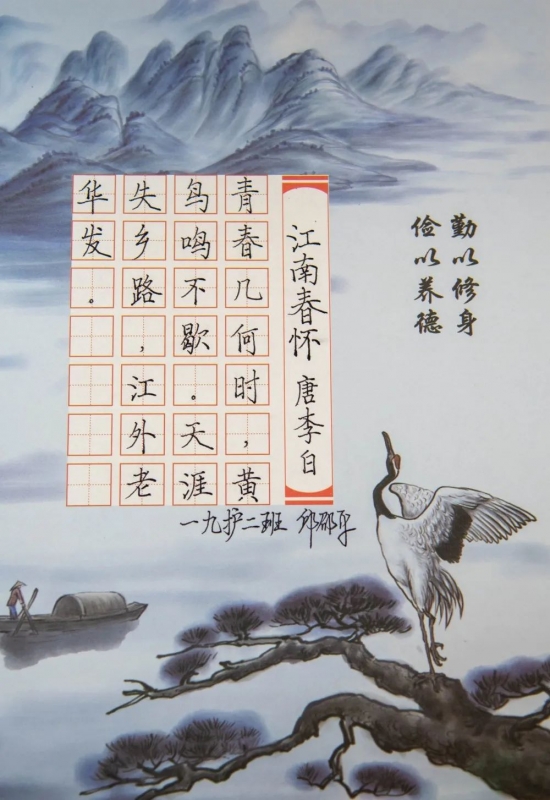 勤以修身
俭以养德
江南春怀 唐李白
青春几何时，黄
鸟鸣不歇。天涯
失乡路，江外老
华发。
一九护二班 邱邵平